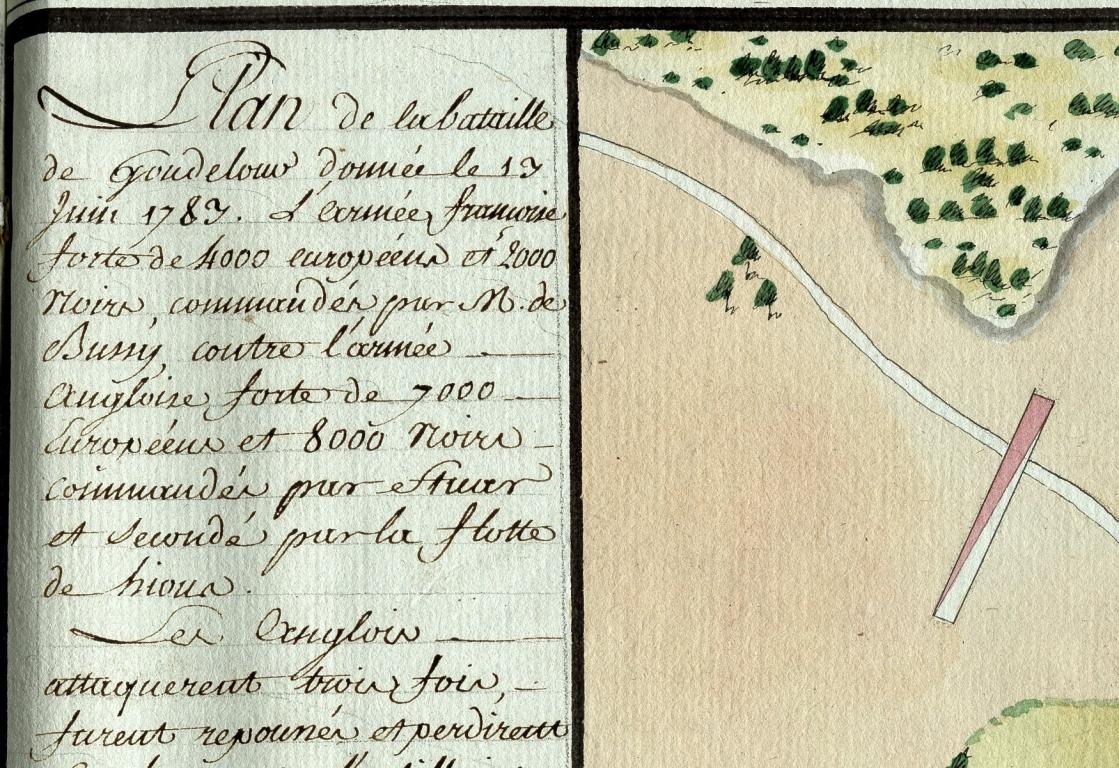 Plan de la bataille
de Goudelour donnée le 13
Juin 1783. L'armée françoise
forte de 4000 européens et 2000
Noirs, commandés par M. de
Bussy, contre l'armée
Angloise forte de 7000
Européens et 8000 Noirs
commandés par Stuar
et secondé par la flotte
de hious.
Les Anglois
attaquerent trois fois,
furent repoussés et perdirent